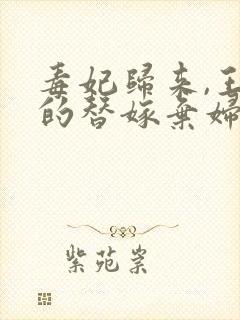 毒妃歸來,王
的替嫁棄婦
紫苑紫